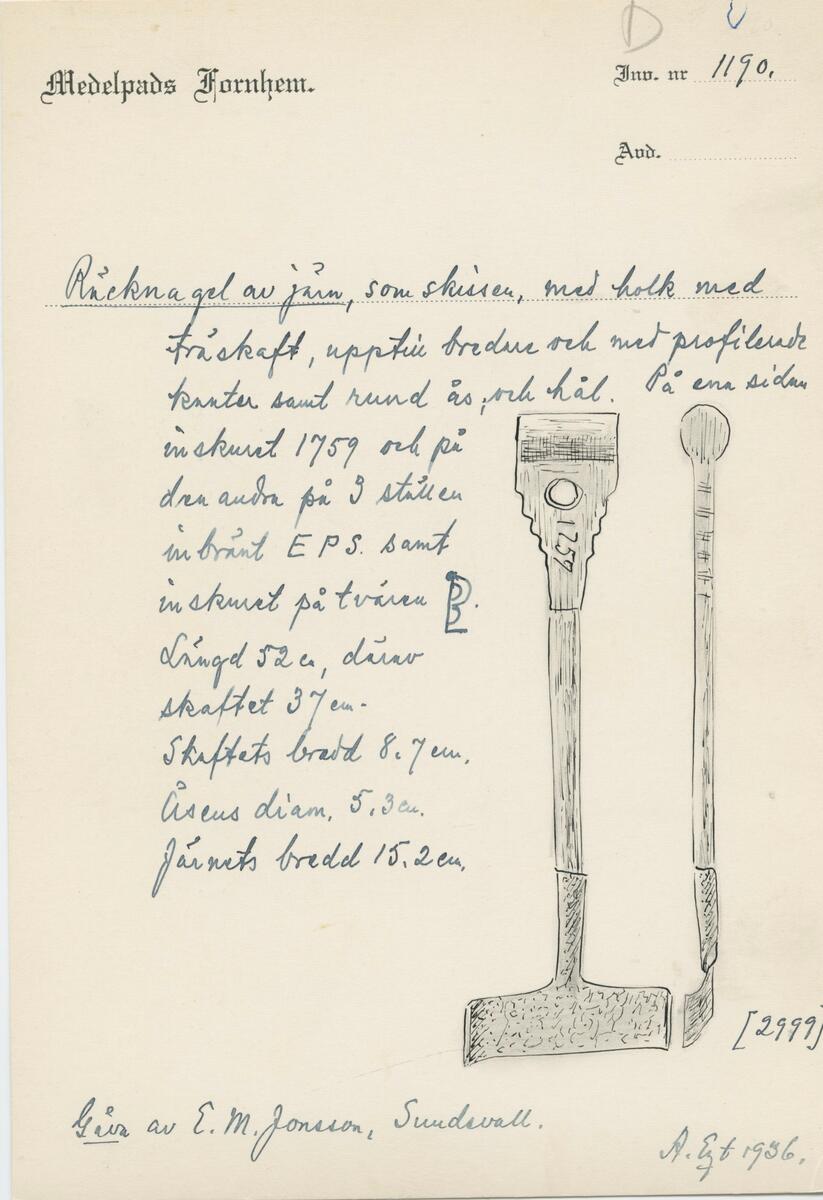 D
Medelpads Fornhem.
Inv. nr 1190.
Avd.
Räcknagel av järn, som skissen, med holk med
träskaft, upptill bredare och med profilerade
kanter samt rund ås, och hål. På ena sidan
inskuret 1759 och på
den andra på 3 ställen
inbränt E P S. samt
inskuret på tvären
Längd 52 cm, därav
skaftet 37 cm.
Skaftets bredd 8.7 cm.
Åsens diam. 5.3 cm.
Järnets bredd 15.2 cm.
1759
[2999]
Gåva av E. M. Jonsson, Sundsvall.
A. Ezt 1936.